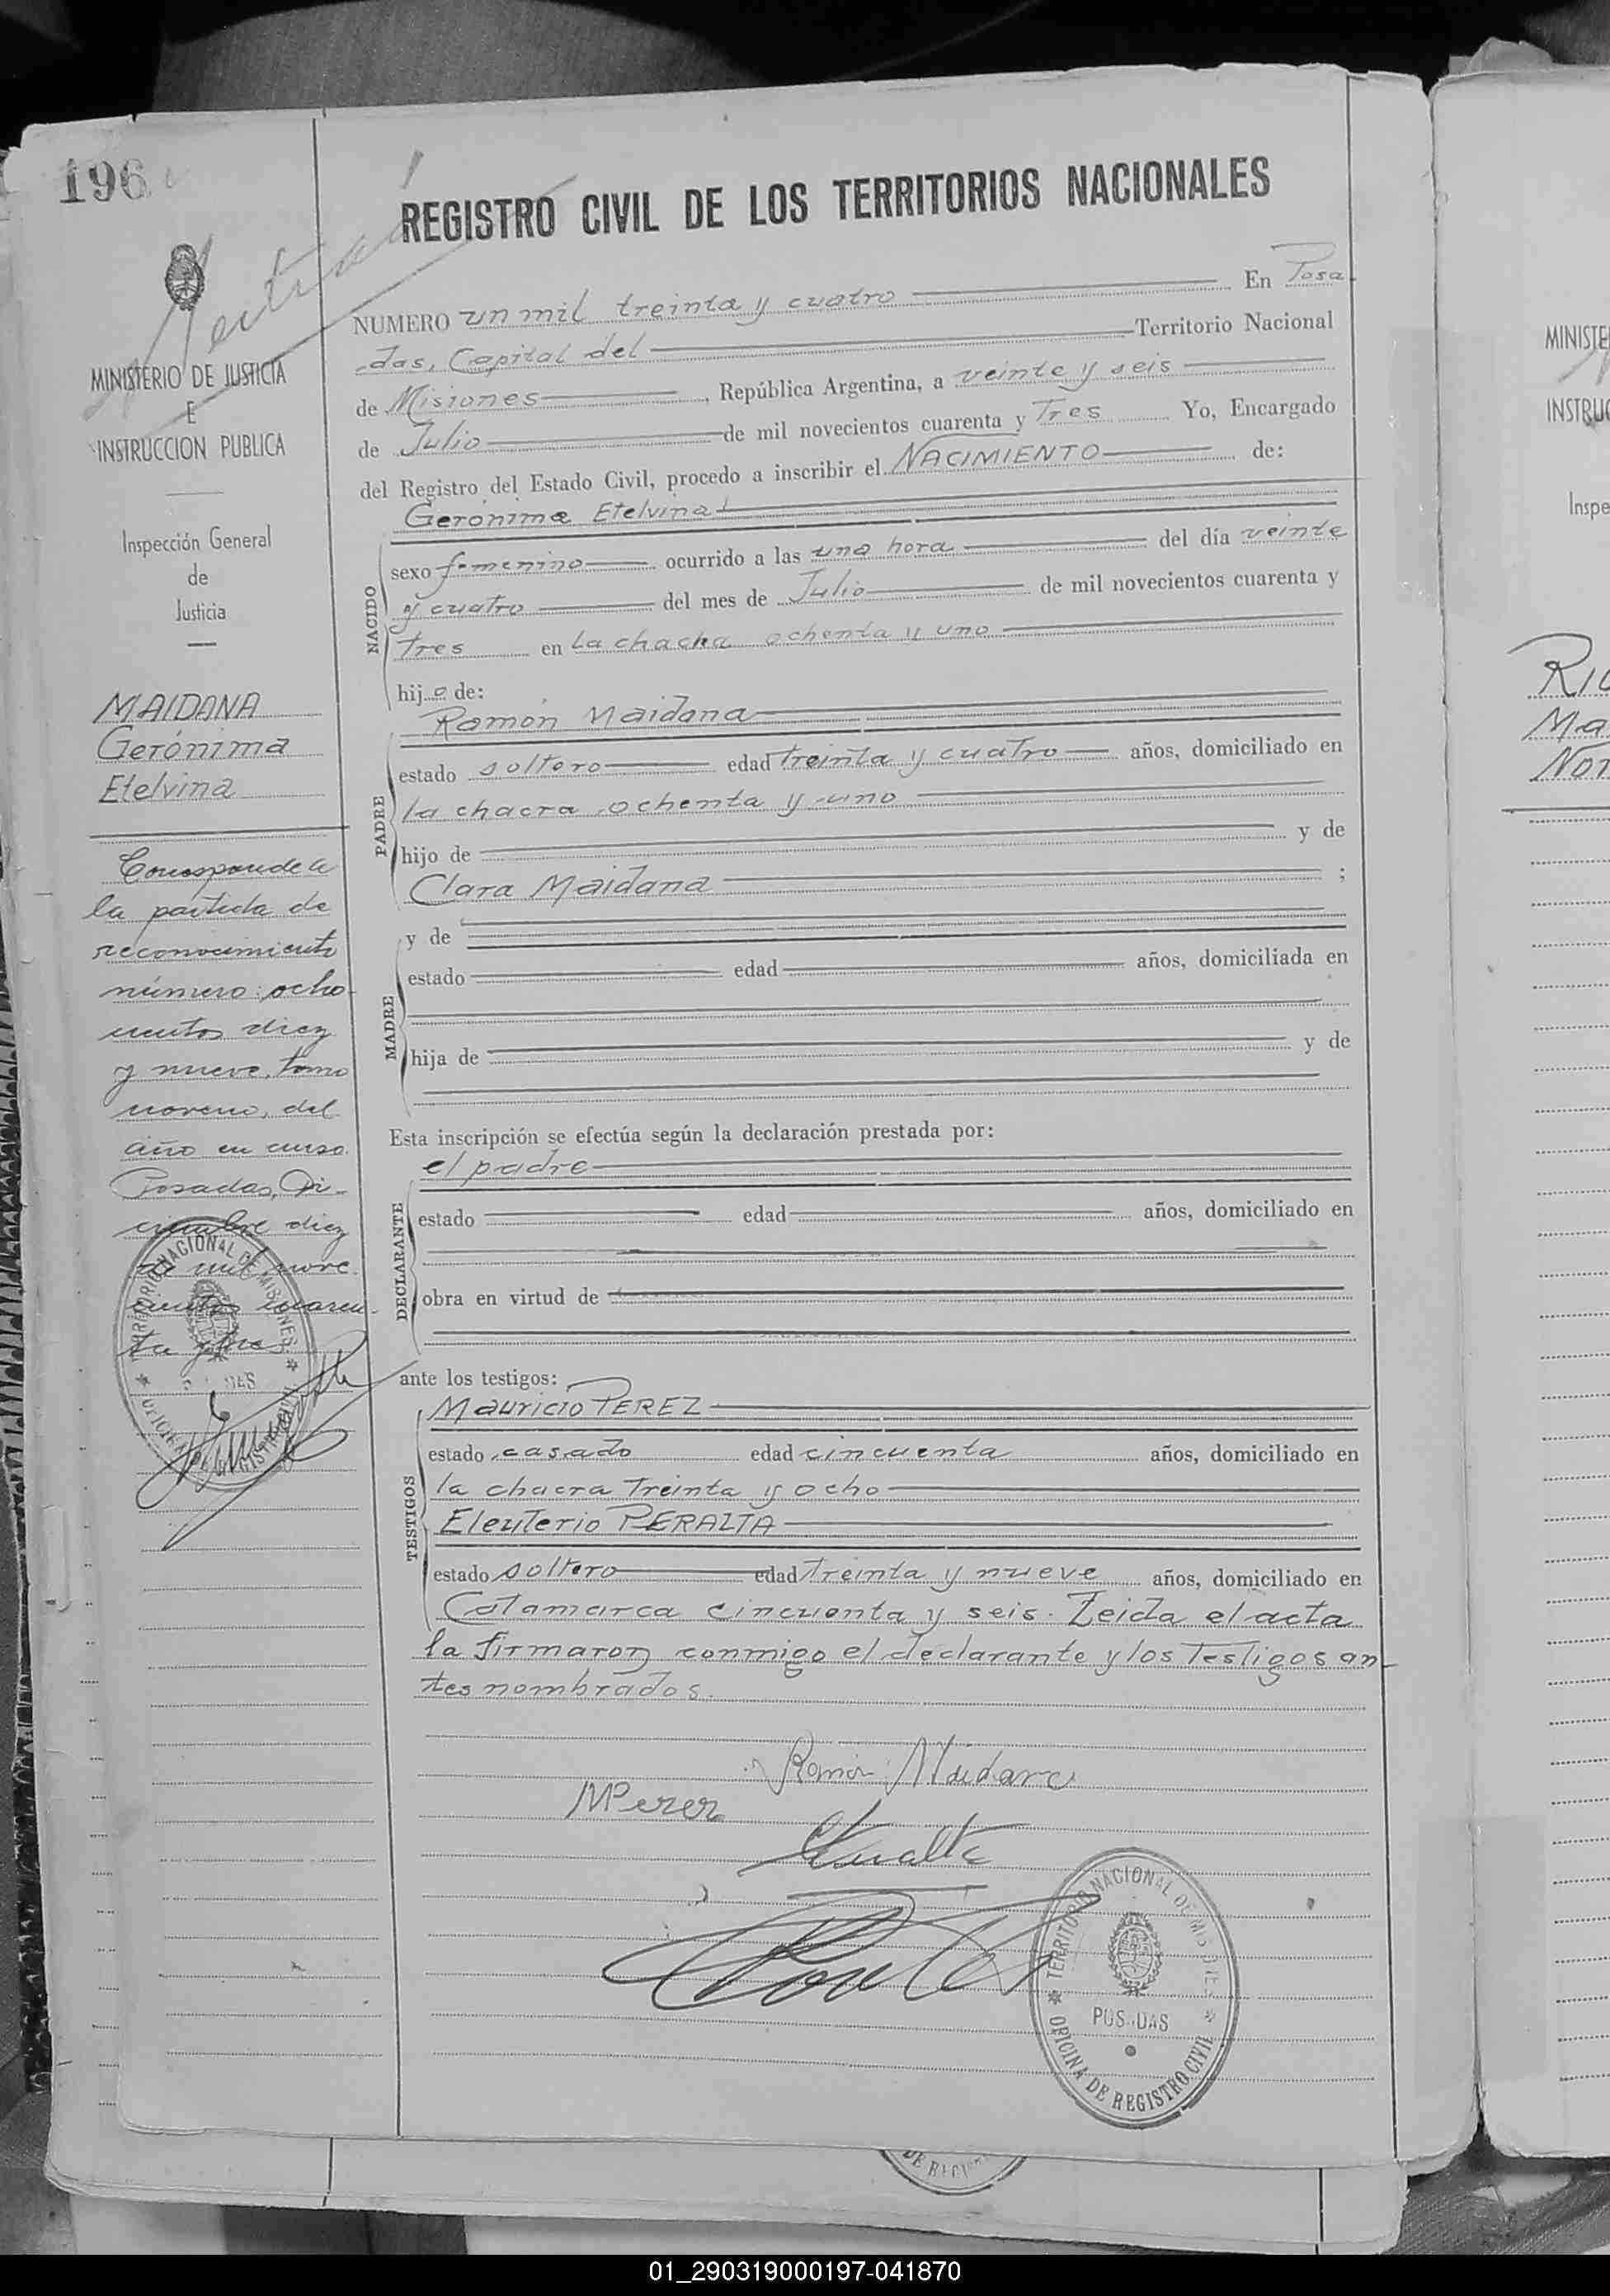 196
REGISTRO CIVIL DE LOS TERRITORIOS NACIONALES
MINISTERIO DE JUSTICIA
E
INSTRUCCION PUBLICA
Inspección General
de
Justicia
MAIDANA
Gerónima
Etelvina
Corresponde a
la partida de
reconocimiento
número: ocho-
cientos diez
y nueve, tomo
noveno, del
año en curso.
Posadas, Di-
ciembre diez
de mil nove-
cientos cuaren-
ta y tres
TERRITORIO NACIONAL DE MISIONES
NUMERO un mil treinta y cuatro En Posa-
das, Capital del Territorio Nacional
de Misiones, República Argentina, a veinte y seis
de Julio de mil novecientos cuarenta y Tres Yo, Encargado
del Registro del Estado Civil, procedo a inscribir el NACIMIENTO de:
Gerónima Etelvina
NACIDO
sexo femenino ocurrido a las una hora del día veinte
y cuatro del mes de Julio de mil novecientos cuarenta y
tres en la chacha ochenta y uno
hija de:
Ramón Maidana
PADRE
estado soltero edad treinta y cuatro años, domiciliado en
la chacra ochenta y uno
hijo de y de
Clara Maidana ;
y de
MADRE
estado edad años, domiciliada en
hija de y de
Esta inscripción se efectúa según la declaración prestada por:
el padre
DECLARANTE
estado edad años, domiciliado en
obra en virtud de
ante los testigos:
Mauricio PEREZ
TESTIGOS
estado casado edad cincuenta años, domiciliado en
la chacra Treinta y ocho
Eleuterio PERALTA
estado soltero edad Treinta y nueve años, domiciliado en
Catamarca cincuenta y seis. Leida el acta
la firmaron conmigo el declarante y los Testigos an-
tes nombrados.
Ramón Maidana
MPerez
TERRITORIO NACIONAL DE MISIONES
POSADAS
OFICINA DE REGISTRO CIVIL
MINISTE
INSTRUC
Inspe
Ma
01_290319000197-041870